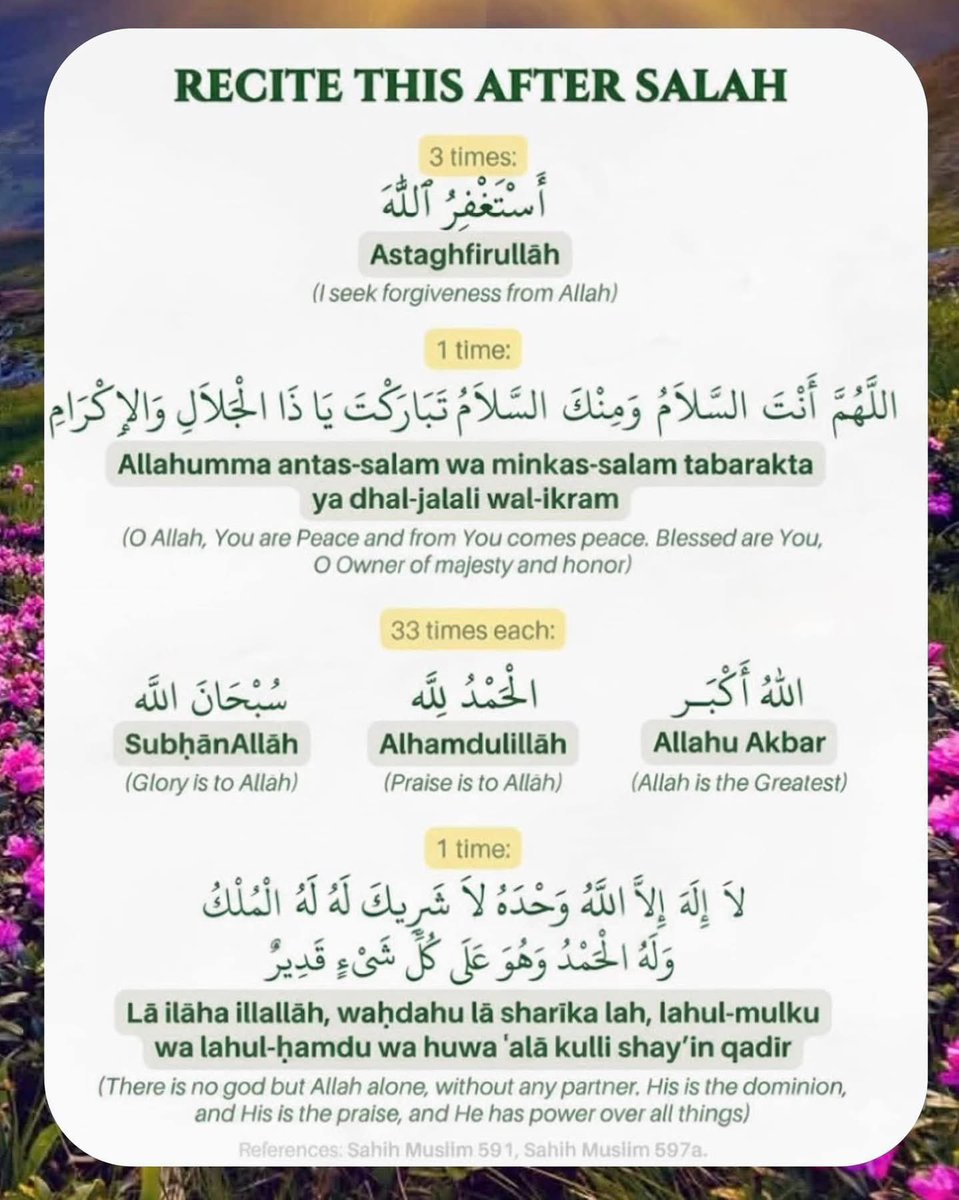 RECITE THIS AFTER SALAH
3 times:
أَسْتَغْفِرُ ٱللَّهَ
Astaghfirullāh
(I seek forgiveness from Allah)
1 time:
اللَّهُمَّ أَنْتَ السَّلاَمُ وَمِنْكَ السَّلاَمُ تَبَارَكْتَ يَا ذَا الْجَلاَلِ وَالإِكْرَامِ
Allahumma antas-salam wa minkas-salam tabarakta
ya dhal-jalali wal-ikram
(O Allah, You are Peace and from You comes peace. Blessed are You,
O Owner of majesty and honor)
33 times each:
سُبْحَانَ اللَّه
SubḥānAllāh
(Glory is to Allāh)
الْحَمْدُ لِلَّه
Alhamdulillāh
(Praise is to Allāh)
اللهُ أَكْبَر
Allahu Akbar
(Allah is the Greatest)
1 time:
لاَ إِلَهَ إِلاَّ اللَّهُ وَحْدَهُ لاَ شَرِيكَ لَهُ لَهُ الْمُلْكُ
وَلَهُ الْحَمْدُ وَهُوَ عَلَى كُلِّ شَىْءٍ قَدِيرٌ
Lā ilāha illallāh, waḥdahu lā sharīka lah, lahul-mulku
wa lahul-ḥamdu wa huwa ʿalā kulli shay’in qadīr
(There is no god but Allah alone, without any partner. His is the dominion,
and His is the praise, and He has power over all things)
References: Sahih Muslim 591, Sahih Muslim 597a.